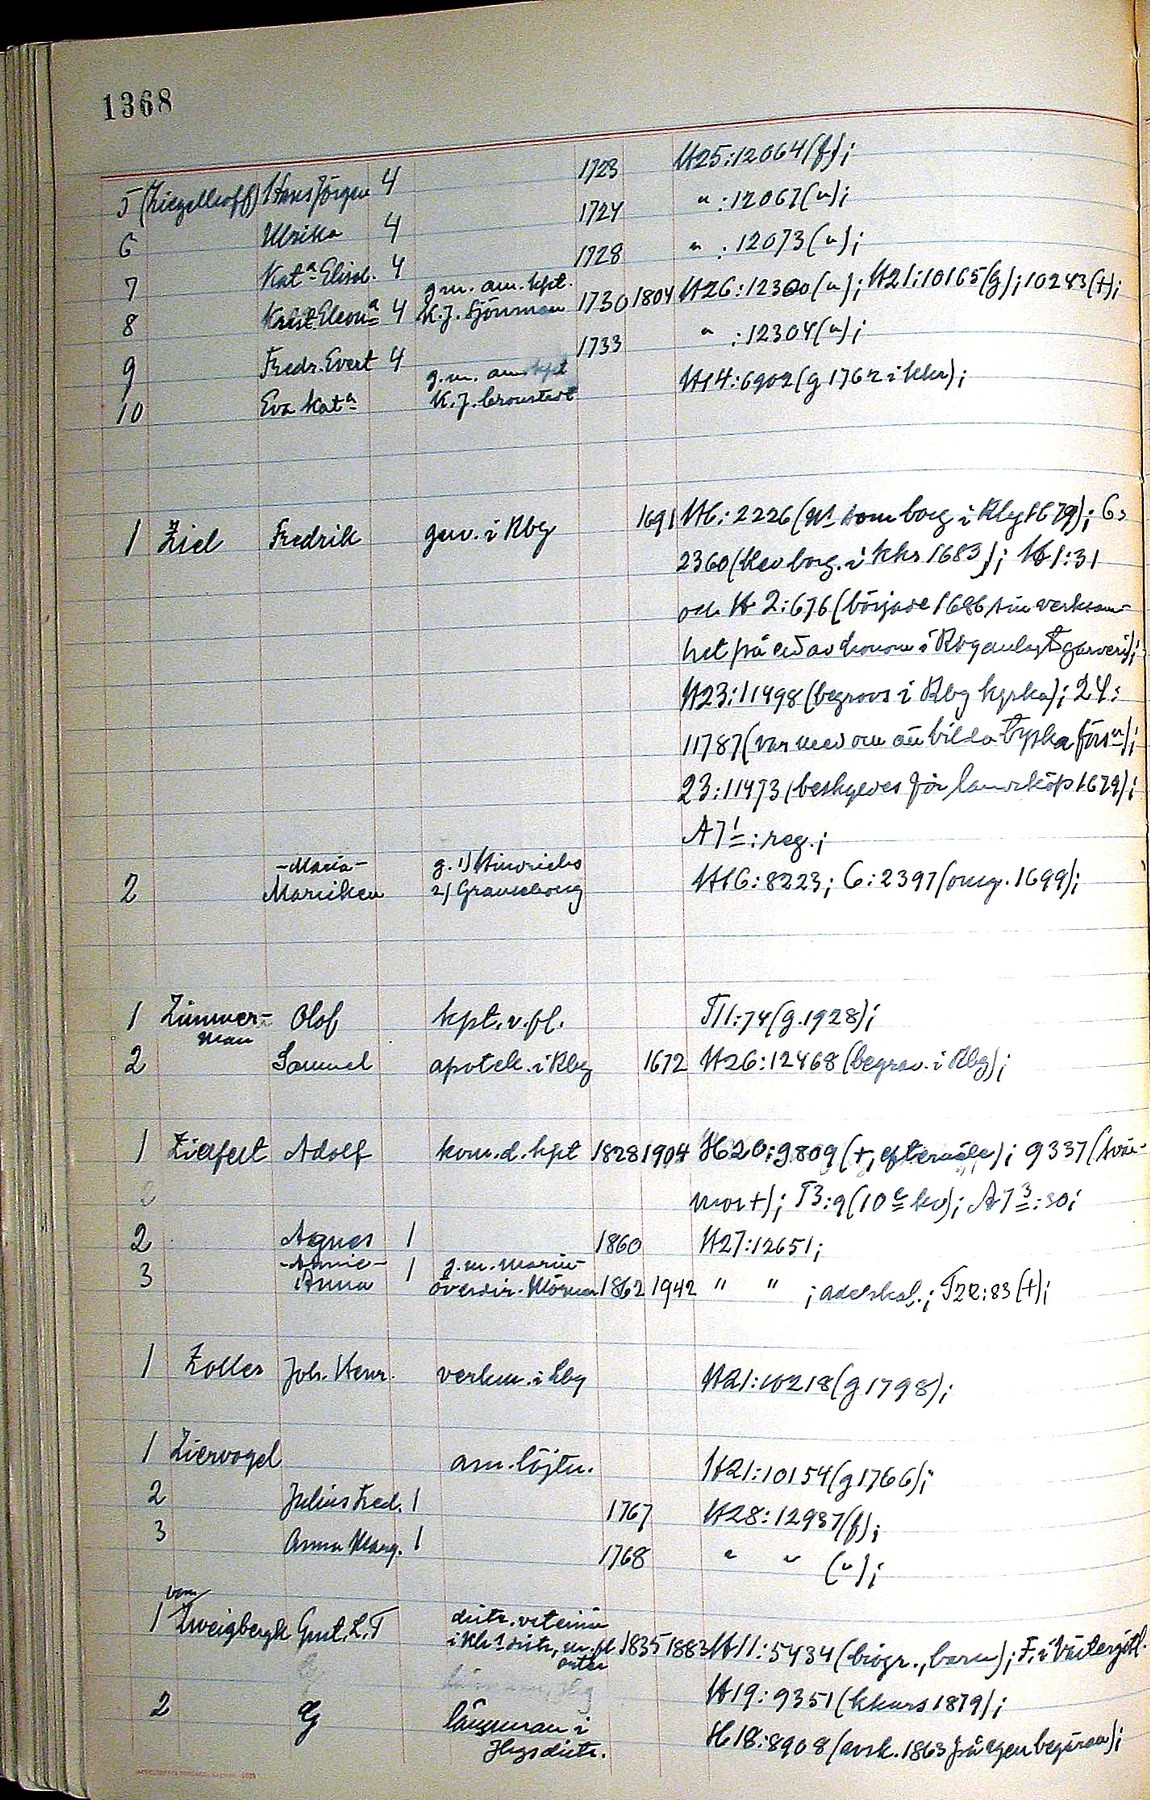 1368
5 (Ziegelhoff) Hans Jörgen 4 1723 H25:12064(f);
6 Ulrika 4 1724 " :12067(");
7 Kat:a Elisab. 4 1728 " :12073(");
8 Krist. Eleon:a 4 g.m. am. kpt. K.J. Sjöman 1730 1804 H26:12300("); H21:10165(g); 10243(+);
9 Fredr. Evert 4 1733 " :12304(");
10 Eva Kat:a g.m. am. kpt K.J. Cronstedt H14:6902(g 1762 i kkr);
1 Ziel Fredrik garv. i Rbg 1691 H6:2226( som borg i Rbg 1679); 6:
2360( borg. i kkr 1683); H1:31
och H2:676 (började 1686 sin verksam-
het på av honom i Rbg anlagt garveri);
H23:11498 (begravs i Rbg kyrka); 24:
11787 (var med om att bilda tyska förs:n);
23:11473 (beskylles för landsköp 1679);
A7 1:reg.;
-Maria- g. 1) Hinrichs
2 Mariken 2) H16:8223; 6:2397 (omg. 1699);
1 Zimmer- Olof kpt. v. fl. T11:74(g. 1928);
man
2 Samuel apotek. i Rbg 1672 H26:12468 (begrav. i Rbg);
1 Zierfelt Adolf kom.d. kpt 1828 1904 H20:9809 (+, eftermäle); 9337 (svär-
mor +); T3:9(10 kv); A7 3:30;
2 Agnes 1 1860 H27:12651;
-Annie- g.m. marin-
3 Anna 1 överdir. Mörner 1862 1942 " " ; adelskal.; T22:83(+);
1 Zoller Joh. Henr. verkm. i Lby H21:10218(g 1798);
1 Ziervogel am. löjtn. H21:10154(g 1766);
2 Julius Fred. 1 1767 H28:12937(f);
3 Anna Marg. 1 1768 " " (");
von
1 Zweigbergk Gust. L. T distr. veterinär
i Kh:s distr., m. fl. orter 1835 1883 H11:5434 (biogr., barn); F. i Västergötl.
H19:9351 (kkurs 1879);
2 G länsman i
Hgs distr. H18:8908 (avsk. 1863 på egen begäran);